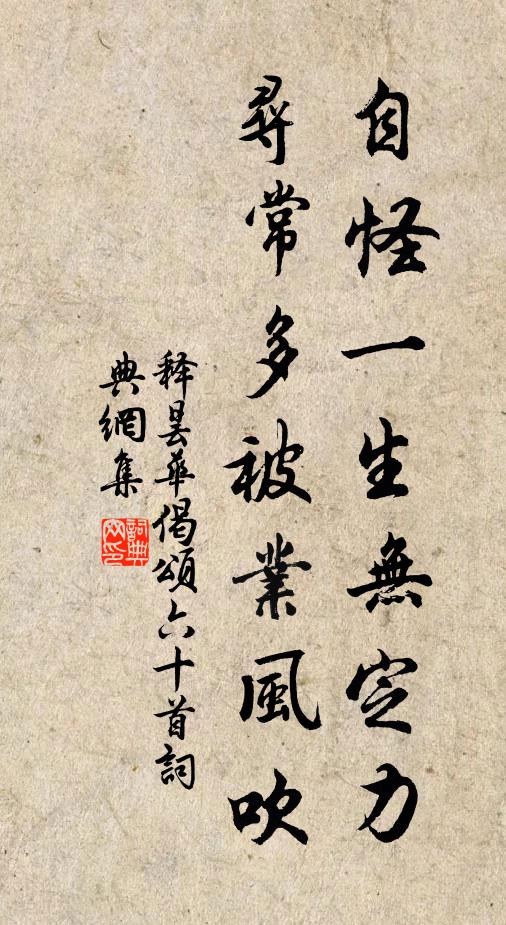 自怪一生無定力
尋常多被業風吹
释曇華偈頌六十首詞
典網集
詞典网印